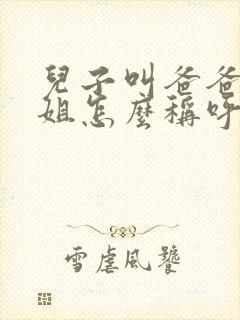 兒子叫爸爸
姐怎麼稱呼
雪虐風饕